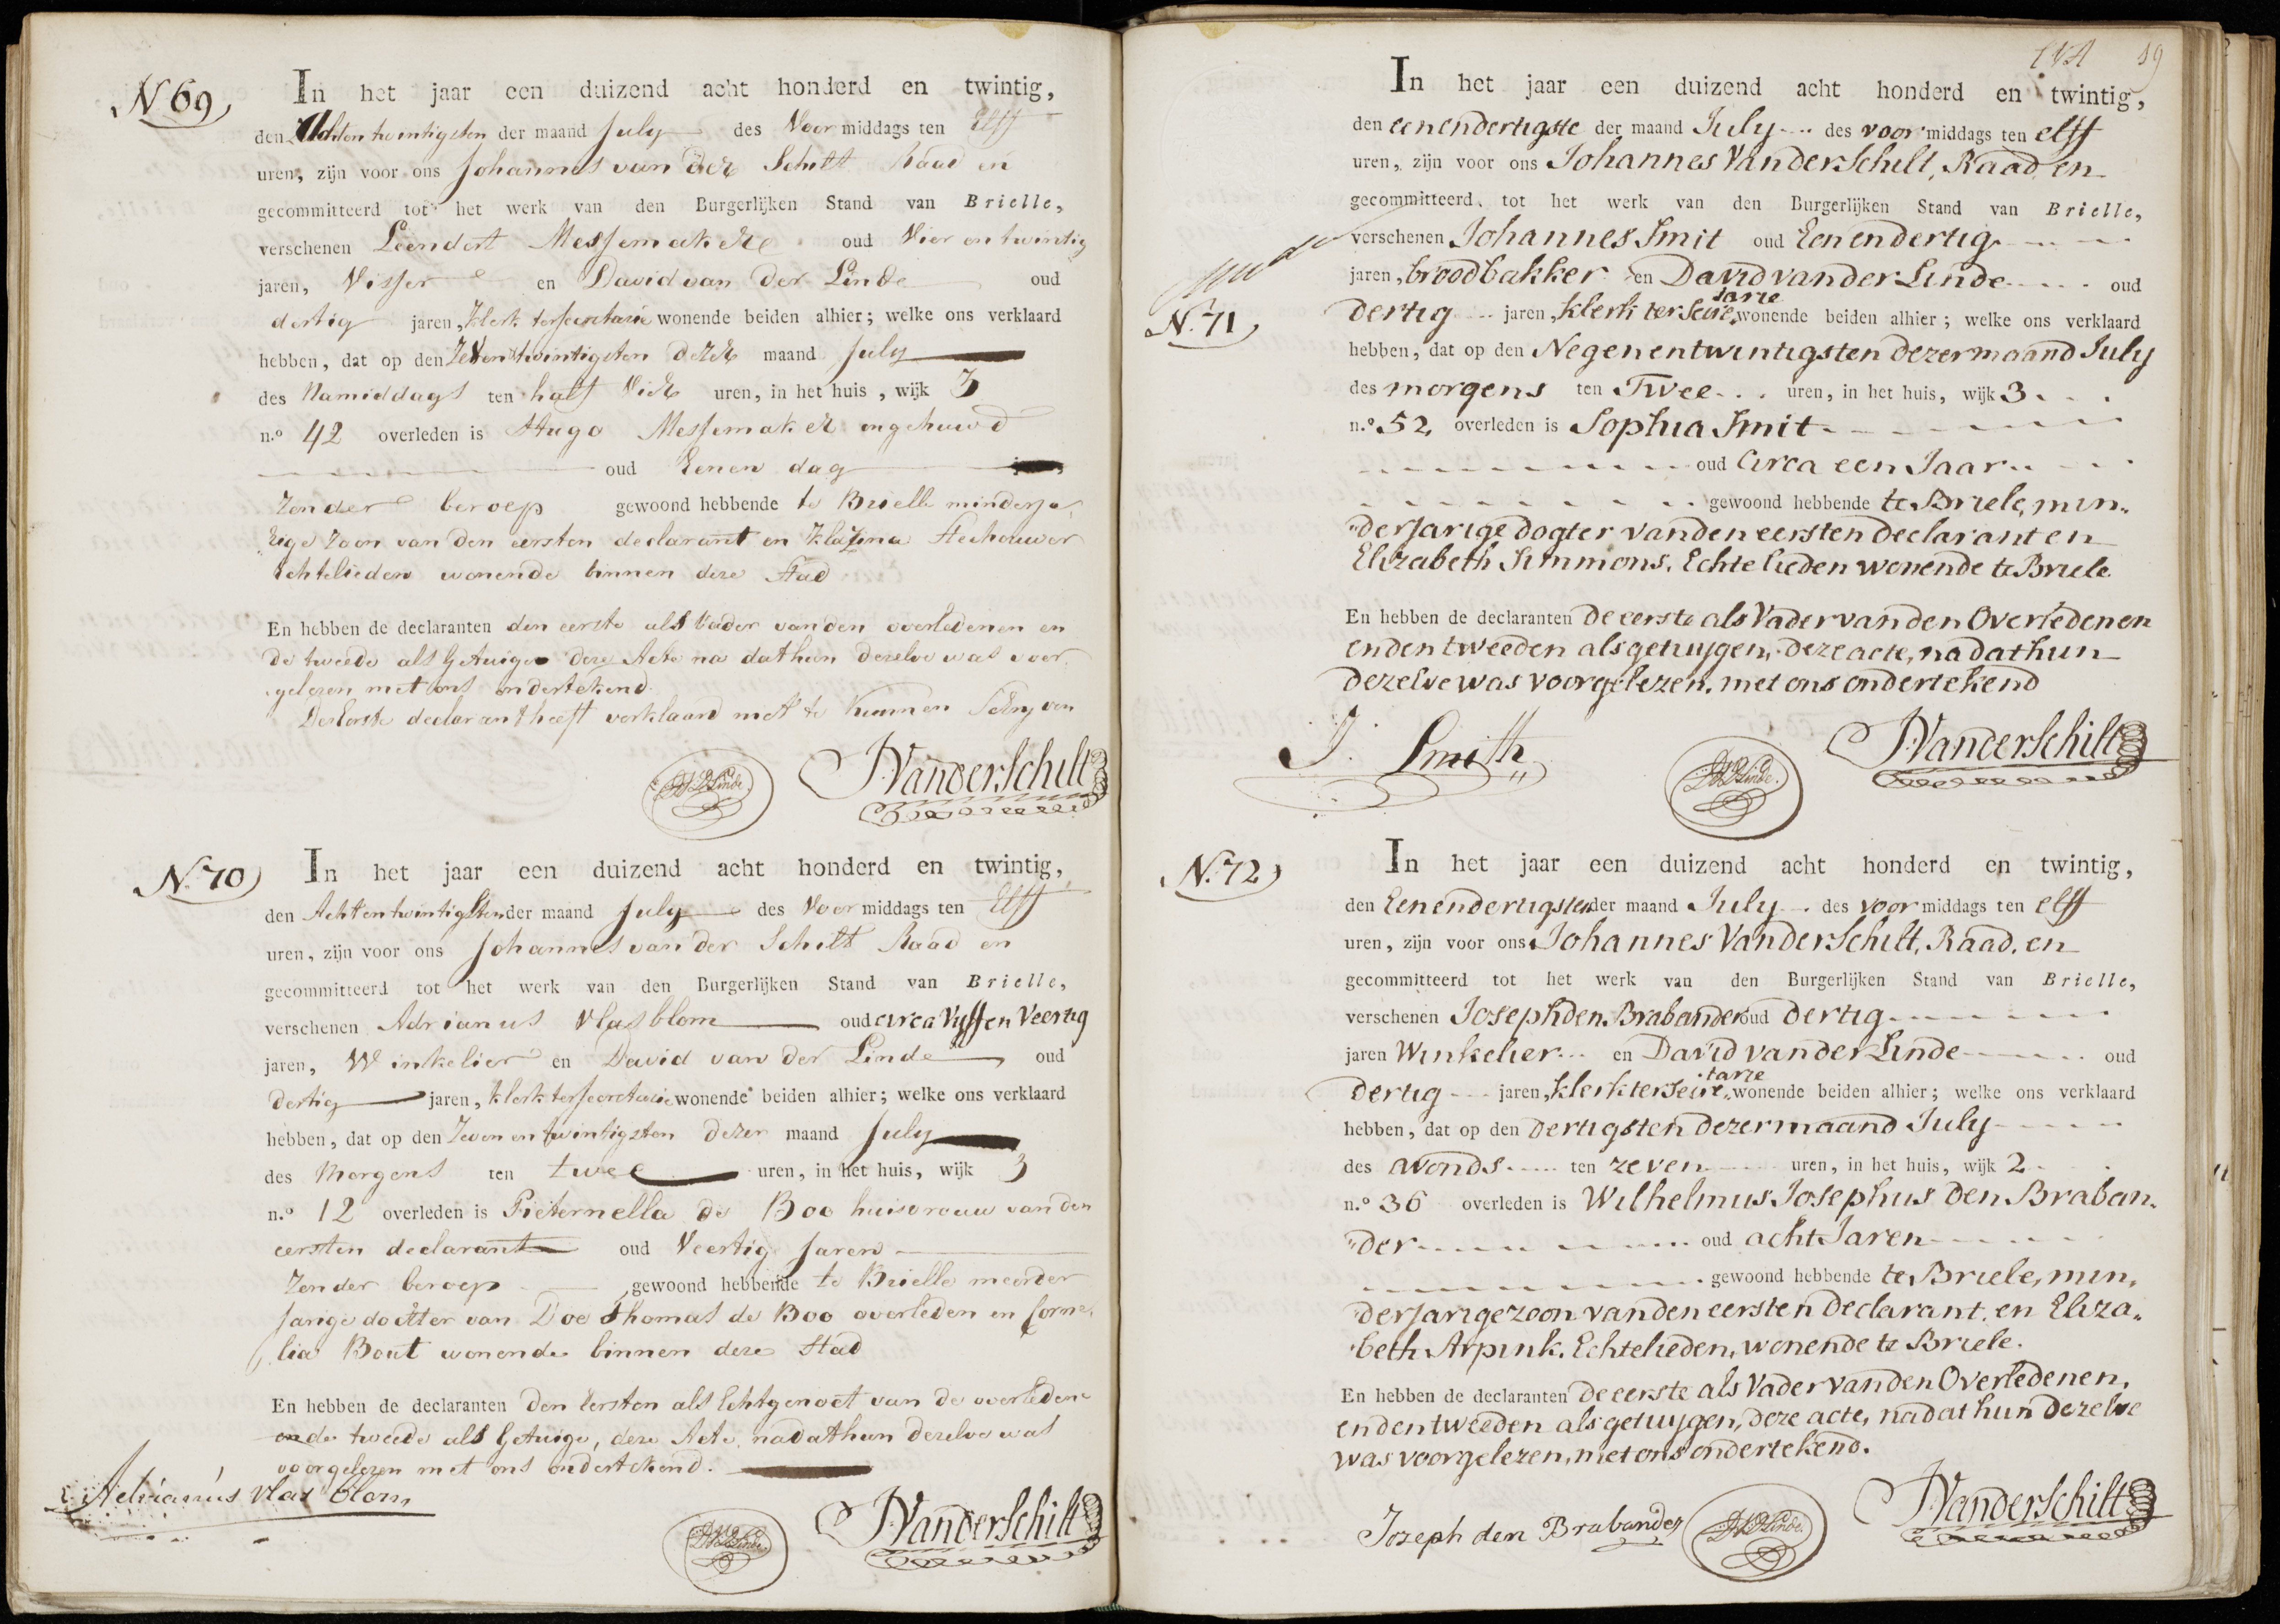 N 69
In het jaar een duizend acht honderd en twintig,
den Achtentwintigsten der maand July des Voor middags ten Elff
uren, zijn voor ons Johannes van der Schilt Raad en
gecommitteerd tot het werk van den Burgerlijken Stand van Brielle,
verschenen Leendert Messemaker oud Vier en twintig
jaren, Visser en David van der Linde oud
dertig jaren, Klerk ter secretarie wonende beiden alhier; welke ons verklaard
hebben, dat op den Zeven twintigsten dezer maand July
des Namiddags ten half Vier uren, in het huis, wijk 3
n.o 42 overleden is Hugo Messemaker ongehuwd
oud Eenen dag
Zonder beroep gewoond hebbende te Brielle minderja
rige Zoon van den eersten declarant en Klazina
Echtelieden wonende binnen deze Stad
En hebben de declaranten den eerste als Vader van den overledenen en
de tweede als Getuige deze Acte na dat hun dezelve was voor
gelezen met ons ondertekend
De Eerste declarant heeft verklaard niet te kunnen Schryven
DVDLinde JVanderSchilt
N. 70
In het jaar een duizend acht honderd en twintig,
den Achtentwintigsten der maand July des Voor middags ten Elff
uren, zijn voor ons Johannes van der Schilt Raad en
gecommitteerd tot het werk van den Burgerlijken Stand van Brielle,
verschenen Adrianus Vlasblom oud circa Vyff en Veertig
jaren, Winkelier en David van der Linde oud
dertig jaren, Klerk ter secretarie wonende beiden alhier; welke ons verklaard
hebben, dat op den Zeven en twintigsten dezer maand July
des Morgens ten twee uren, in het huis, wijk 3
n.o 12 overleden is Pieternella de Boo huisvrouw van den
eersten declarant oud Veertig Jaren
Zonder beroep gewoond hebbende te Brielle meerder
Jarige dochter van Doe Thomas de Boo overleden en Corne
lia Bout wonende binnen deze Stad
En hebben de declaranten Den Eersten als Echtgenoet van de overleden
en de tweede als Getuige, deze Acte, nadat hun dezelve was
voorgelezen met ons ondertekend.
Adrianus Vlas blom
DVDLinde JVanderSchilt
89
In het jaar een duizend acht honderd en twintig,
den eenendertigste der maand July des voor middags ten elff
uren, zijn voor ons Johannes Van der Schilt, Raad, en
gecommitteerd tot het werk van den Burgerlijken Stand van Brielle,
verschenen Johannes Smit oud Een en dertig
jaren, broodbakker en David van der Linde oud
N. 71
dertig jaren, klerk ter Secretarie, wonende beiden alhier; welke ons verklaard
hebben, dat op den Negenentwintigsten dezer maand July
des morgens ten Twee uren, in het huis, wijk 3
n.o 52, overleden is Sophia Smit
oud Circa een Jaar
gewoond hebbende te Briele, min
derjarige dogter van den eersten declarant en
Elizabeth Simmons. Echtelieden wonende te Briele.
En hebben de declaranten De eerste als Vader van den Overledenen
en den tweeden als getuygen, deze acte, na dat hun
dezelve was voorgelezen, met ons ondertekend
J. Smith DVDLinde JVanderSchilt
N. 72
In het jaar een duizend acht honderd en twintig,
den Eenendertigsten der maand July des voor middags ten elff
uren, zijn voor ons Johannes Van der Schilt, Raad, en
gecommitteerd tot het werk van den Burgerlijken Stand van Brielle,
verschenen Joseph den Brabander oud dertig
jaren Winkelier en David van der Linde oud
dertig jaren, klerk ter Secretarie, wonende beiden alhier; welke ons verklaard
hebben, dat op den dertigsten dezer maand July
des avonds ten zeven uren, in het huis, wijk 2
n.o 36 overleden is Wilhelmus Josephus den Braban
der oud acht Jaren
gewoond hebbende te Briele, min
derjarige zoon van den eersten declarant, en Eliza
beth Arpink. Echtelieden, wonende te Briele.
En hebben de declaranten De eerste als Vader van den Overledenen,
en den tweeden als getuygen, deze acte, na dat hun dezelve
was voorgelezen, met ons ondertekend.
Joseph den Brabander DVDLinde JVanderSchilt